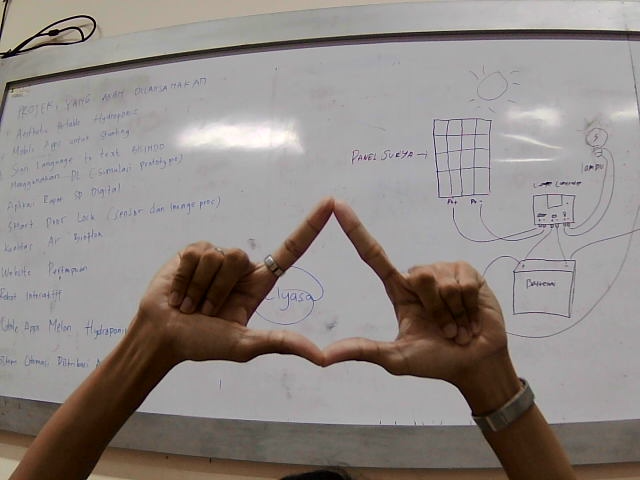 PROJEK YANG AKAN DILAKSANAKAN
Aesthetic Portable Hydroponic
Mobile Apps untuk Stunting
Sign Language to text BISINDO
Menggunakan DL (Simulasi prototype)
Aplikasi Rapor SD Digital
Smart Door Lock (sensor dan image proc)
Kualitas Air Bioflok
Website Perempuan
Robot Interaktif
Mobile Apps Melon Hydroponi
Sistem Otomasi Distribusi A
Elyasa
PANEL SURYA →
P+ P-
LAMPU
Baterai